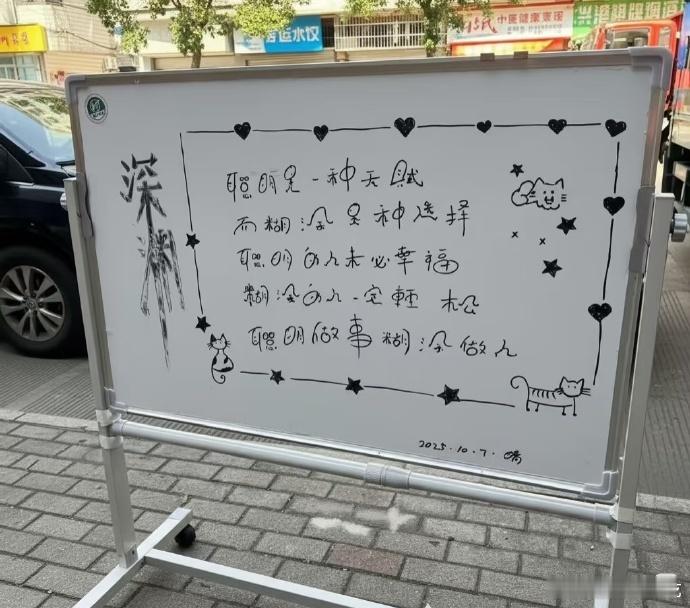 运水饺
中医健康表现
深
聪明是一种天赋
而糊涂是种选择
聪明的人未必幸福
糊涂的人一定轻松
聪明做事糊涂做人
2025.10.7.晴